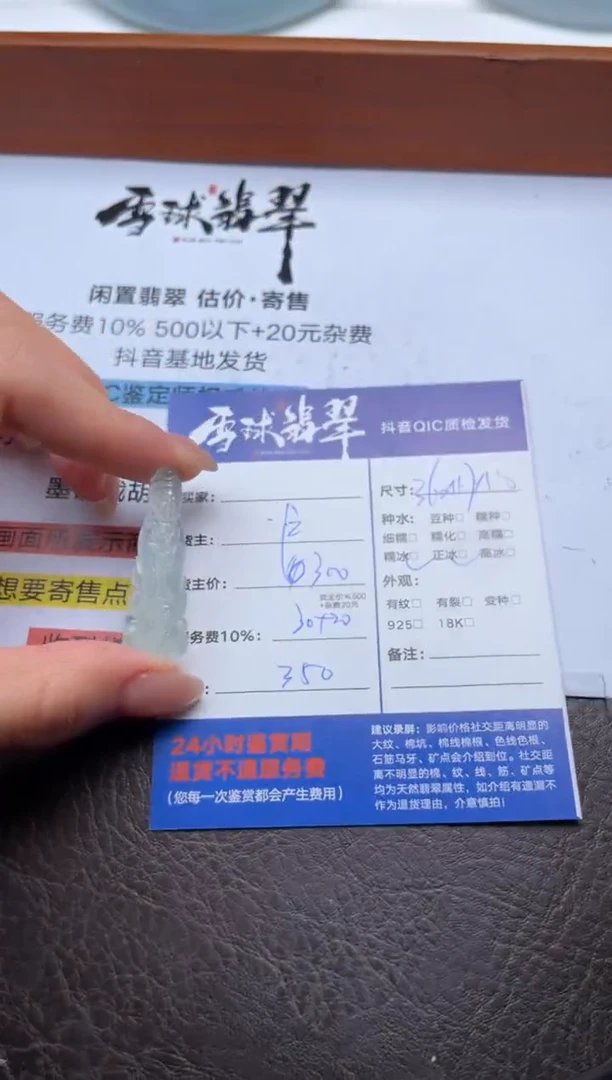 雪球翡翠
闲置翡翠 估价·寄售
服务费10% 500以下+20元杂费
抖音基地发货
C鉴定师
墨
胡
画面所
想要寄售点
雪球翡翠
抖音QIC质检发货
买家：
货主：
货主价： 300
+杂费20元
服务费10%： 30+20
： 350
尺寸：
种水： 豆种□ 糯种□
细糯□ 糯化□ 高糯□
糯冰□ 正冰□ 高冰□
外观：
有纹□ 有裂□ 变种□
925□ 18K□
备注：
24小时鉴赏期
退货不退服务费
(您每一次鉴赏都会产生费用)
建议录屏：影响价格社交距离明显的
大纹、棉坑、棉线棉根、色线色根、
石筋马牙、矿点会介绍到位。社交距
离不明显的棉、纹、线、筋、矿点等
均为天然翡翠属性，如介绍有遗漏不
作为退货理由，介意慎拍！